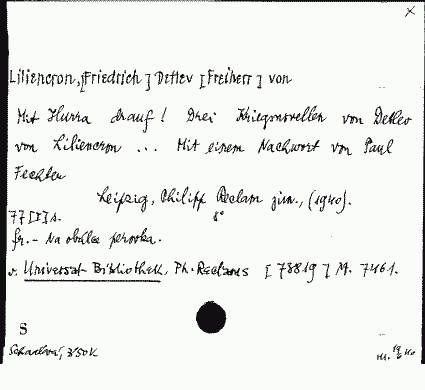 x
Liliencron, [Friedrich] Detlev [Freiherr] von
Mit Hurra drauf! Drei Kriegsnovellen von Detlev
von Liliencron ... Mit einem Nachwort von Paul
Fechter
Leipzig, Philipp Reclam jun., (1940).
77 [I] s. 8°
fr. - Na obálce perovka.
v. Universal-Bibliothek, Ph. Reclams [78819] N. 7461.
S
3.50 K